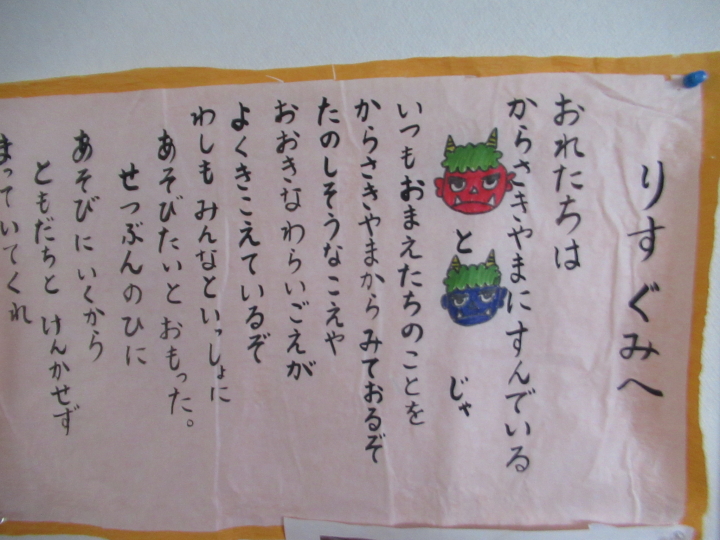 りすぐみへ
おれたちは
からさきやまにすんでいる
と じゃ
いつもおまえたちのことを
からさきやまからみておるぞ
たのしそうなこえや
おおきなわらいごえが
よくきこえているぞ
わしもみんなといっしょに
あそびたいとおもった。
せつぶんのひに
あそびにいくから
ともだちとけんかせず
まっていてくれ